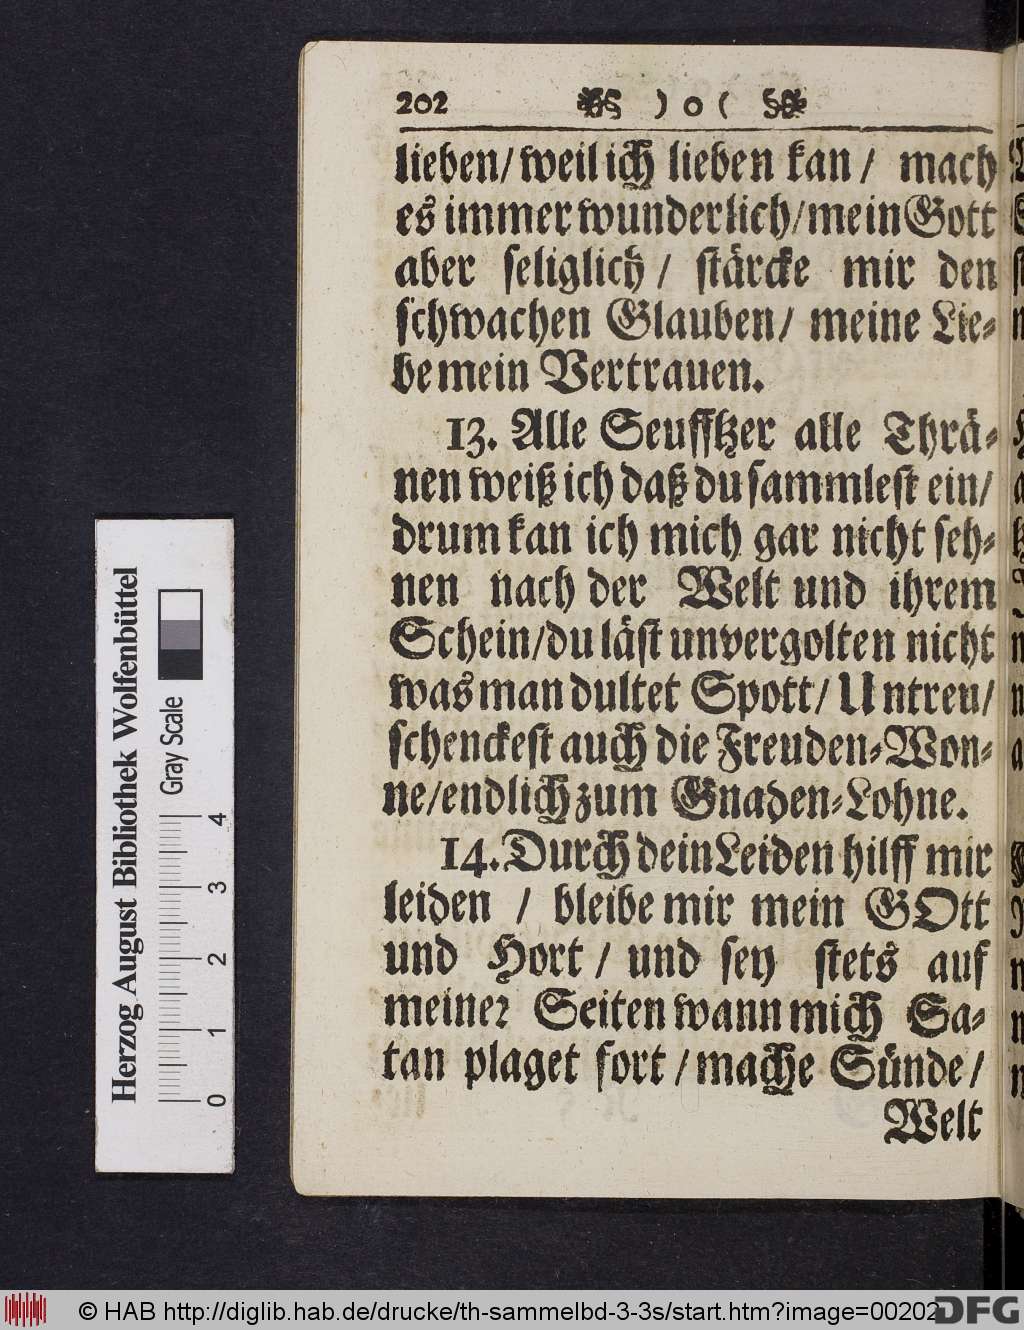 202 ) o (
lieben/ weil ich lieben kan / mach
es immer wunderlich/ mein Gott
aber seliglich / stärcke mir den
schwachen Glauben/ meine Lie-
be mein Vertrauen.
13. Alle Seufftzer alle Thrä-
nen weiß ich daß du sammlest ein/
drum kan ich mich gar nicht seh-
nen nach der Welt und ihrem
Schein/ du läst unvergolten nicht
was man dultet Spott/ Untreu/
schenckest auch die Freuden-Won-
ne/ endlich zum Gnaden-Lohne.
14. Durch dein Leiden hilff mir
leiden / bleibe mir mein GOtt
und Hort / und sey stets auf
meiner Seiten wann mich Sa-
tan plaget fort / mache Sünde /
Welt
Herzog August Bibliothek Wolfenbüttel
Gray Scale
0 1 2 3 4
© HAB http://diglib.hab.de/drucke/th-sammelbd-3-3s/start.htm?image=00202
DFG